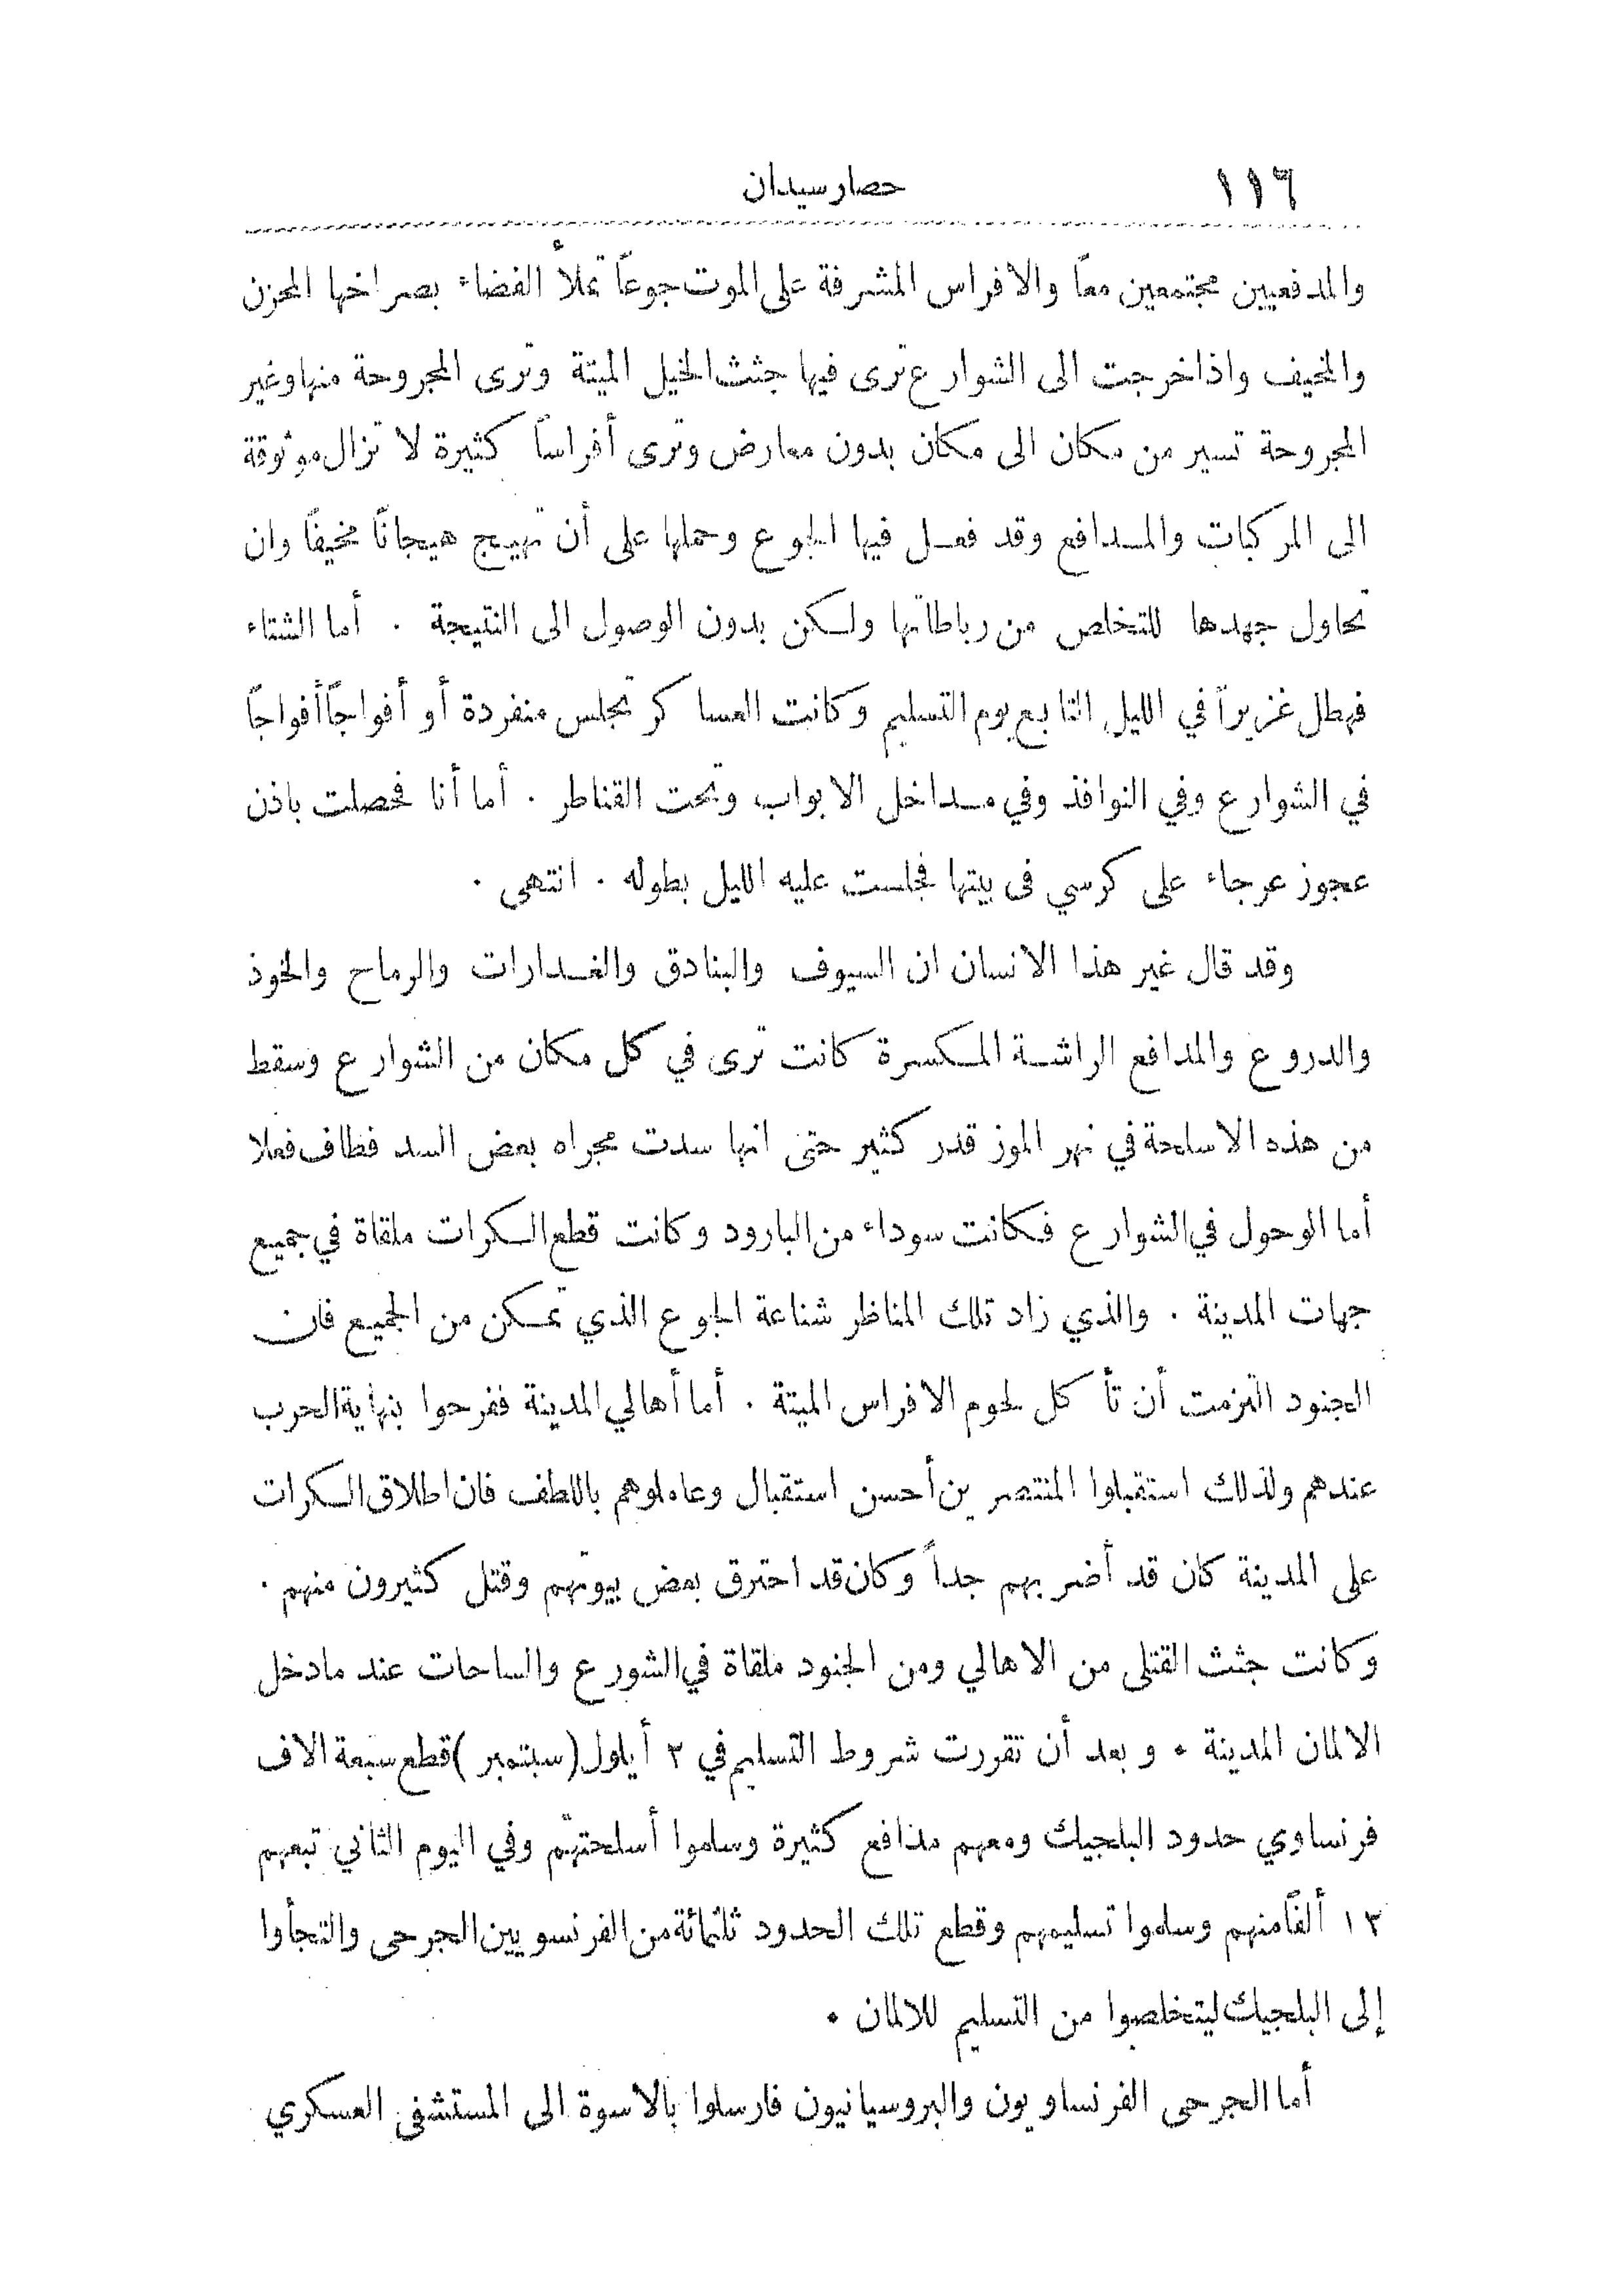 ١١٦ حصار سيدان
والمدفعيين مجتمعين معاً والافراس المشرفة على الموت جوعاً تملأ الفضاء بصراخها المحزن
والمخيف واذا خرجت الى الشوارع ترى فيها جثث الخيل الميتة وترى المجروحة منها وغير
المجروحة تسير من مكان الى مكان بدون معارض وترى أفراساً كثيرة لا تزال موثوقة
الى المركبات والمدافع وقد فعل فيها الجوع وحملها على أن تهيج هيجاناً مخيفاً وان
تحاول جهدها للتخلص من رباطاتها ولكن بدون الوصول الى النتيجة . أما الشتاء
فهطل غزيراً في الليل التابع يوم التسليم وكانت العساكر تجلس منفردة أو أفواجاً أفواجاً
في الشوارع وفي النوافذ وفي مداخل الابواب وتحت القناطر . أما أنا فحصلت باذن
عجوز عرجاء على كرسي فى بيتها فجلست عليه الليل بطوله . انتهى .
وقد قال غير هذا الانسان ان السيوف والبنادق والغدارات والرماح والخوذ
والدروع والمدافع الراشة المكسرة كانت ترى في كل مكان من الشوارع وسقط
من هذه الاسلحة في نهر الموز قدر كثير حتى انها سدت مجراه بعض السد فطاف فعلا
أما الوحول في الشوارع فكانت سوداء من البارود وكانت قطع الكرات ملقاة في جميع
جهات المدينة . والذي زاد تلك المناظر شناعة الجوع الذي تمكن من الجميع فان
الجنود التزمت أن تأكل لحوم الافراس الميتة . أما أهالي المدينة ففرحوا بنهاية الحرب
عندهم ولذلك استقبلوا المنتصرين أحسن استقبال وعاملوهم باللطف فان اطلاق الكرات
على المدينة كان قد أضر بهم جداً وكان قد احترق بعض بيوتهم وقتل كثيرون منهم .
وكانت جثث القتلى من الاهالي ومن الجنود ملقاة في الشورع والساحات عند ما دخل
الالمان المدينة . وبعد أن تقررت شروط التسليم في ٣ أيلول (سبتمبر) قطع سبعة الاف
فرنساوي حدود البلجيك ومعهم مدافع كثيرة وسلموا أسلحتهم وفي اليوم الثاني تبعهم
١٣ ألفاً منهم وسلموا تسليمهم وقطع تلك الحدود ثلثمائة من الفرنسويين الجرحى والتجأوا
إلى البلجيك ليتخلصوا من التسليم للالمان .
أما الجرحى الفرنساويون والبروسيانيون فارسلوا بالاسوة الى المستشفى العسكري